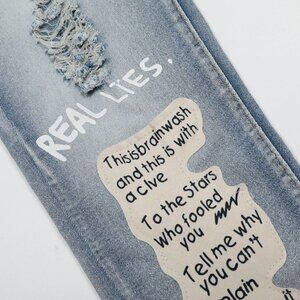 REAL LIES.
Thisisbrainwash
and this is with
a Clve
To the Stars
who fooled
you
Tell me why
you Can't
plain
it